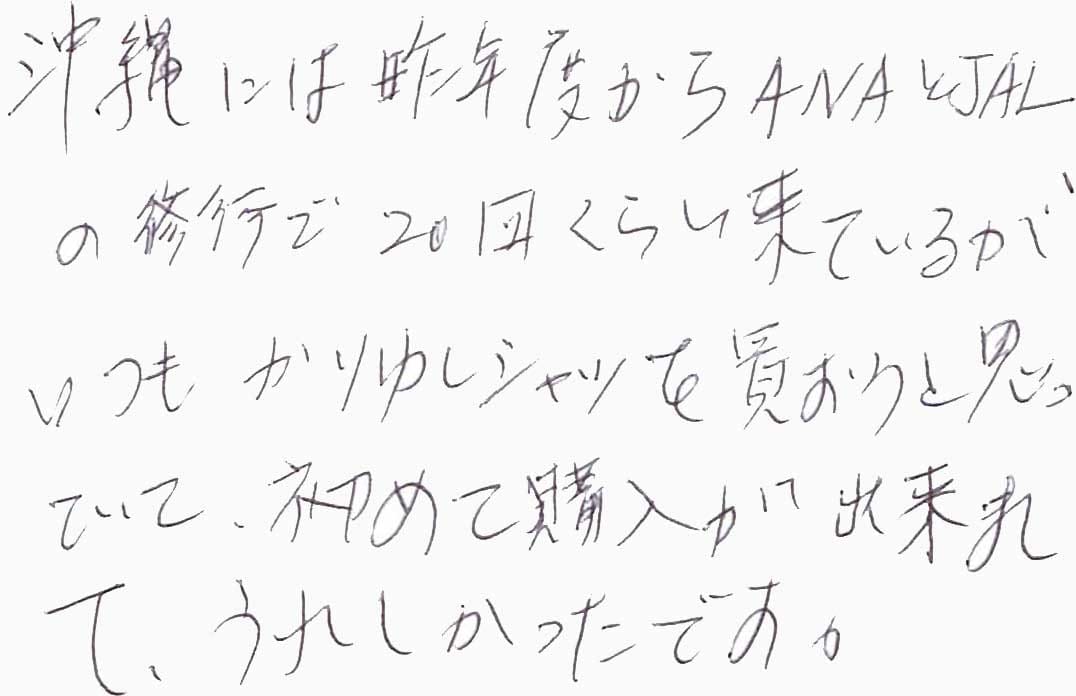 沖縄には昨年度からANAとJAL
の修行で20回くらい来ているが
いつもかりゆしシャツを買おうと思っ
ていて、初めて購入が出来れ
て、うれしかったです。